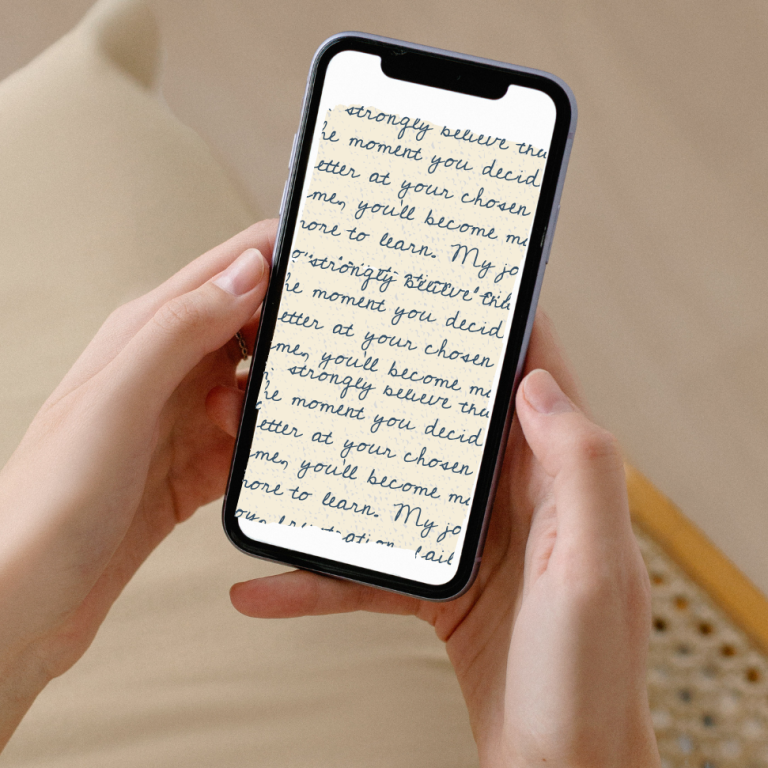 strongly believe tha
he moment you decid
etter at your chosen
me, you'll become mo
nore to learn. My jo
strongly believe tha
he moment you decid
etter at your chosen
me, you'll become mo
strongly believe tha
he moment you decid
etter at your chosen
me, you'll become mo
nore to learn. My jo
fail